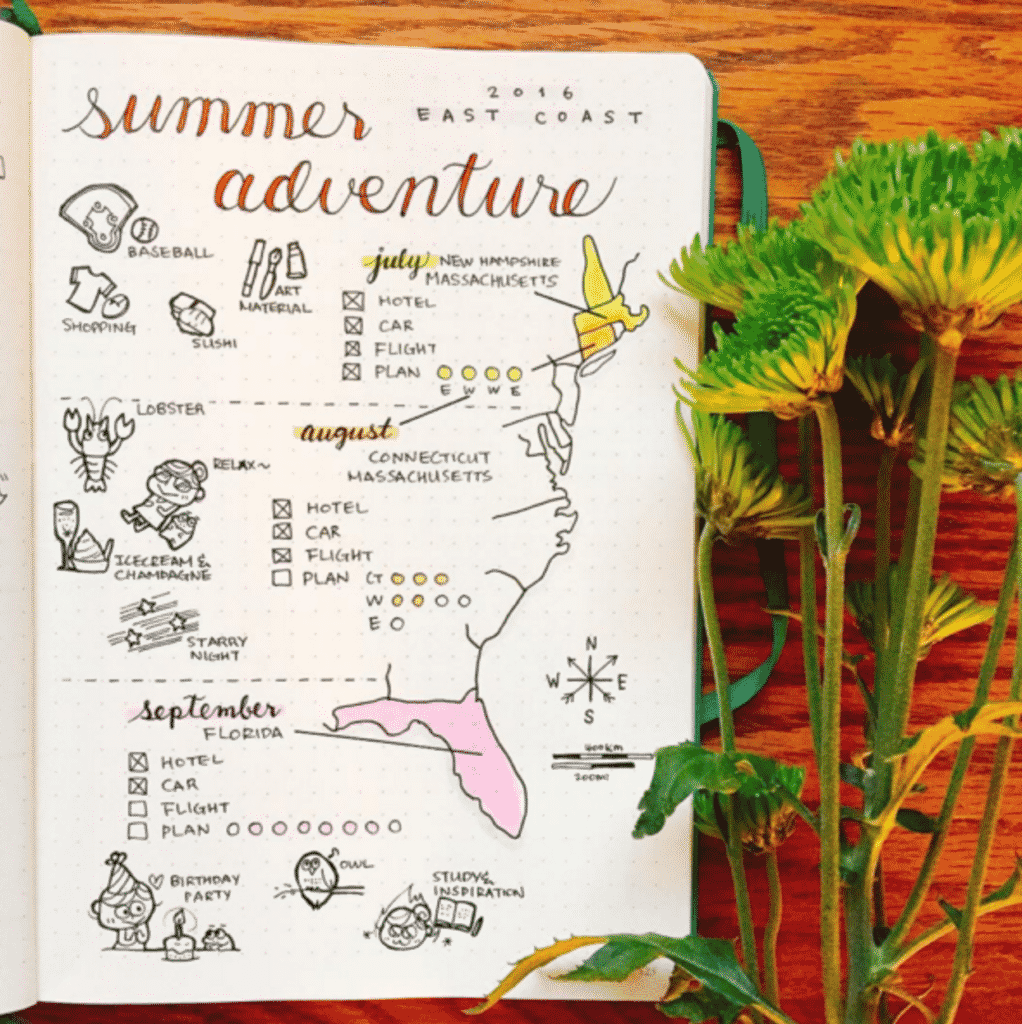 summer
2016
EAST COAST
adventure
BASEBALL
ART
MATERIAL
SHOPPING
SUSHI
july NEW HAMPSHIRE
MASSACHUSETTS
HOTEL
CAR
FLIGHT
PLAN
E W W E
LOBSTER
RELAX~
ICECREAM &
CHAMPAGNE
STARRY
NIGHT
august
CONNECTICUT
MASSACHUSETTS
HOTEL
CAR
FLIGHT
PLAN CT
W
E
N
W E
S
400km
200mi
september
FLORIDA
HOTEL
CAR
FLIGHT
PLAN
BIRTHDAY
PARTY
OWL
STUDY &
INSPIRATION